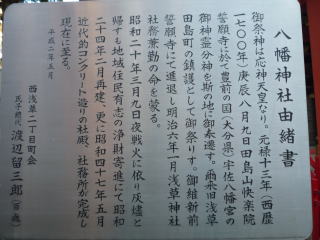 八幡神社由緒書
御祭神は応神天皇なり。元禄十三年(西歴
一七〇〇年)庚辰八月九日田島山快楽院
誓願寺に於て豊前の国(大分県)宇佐八幡宮の
御神霊分神を斯の地に御奉遷す。爾来旧浅草
田島町の鎮護として御祭りす。御維新前
誓願寺にて進退し明治六年一月浅草神社
社務兼勤の命を蒙る。
昭和二十年三月九日夜戦火に依り灰燼と
帰すも地域住民有志の浄財寄進にて昭和
二十四年二月再建、更に昭和四十七年五月
近代的コンクリート造りの社殿、社務所が完成し
現在に至る。
平成二年五月
西浅草二丁目町会
氏子総代 渡辺留三郎